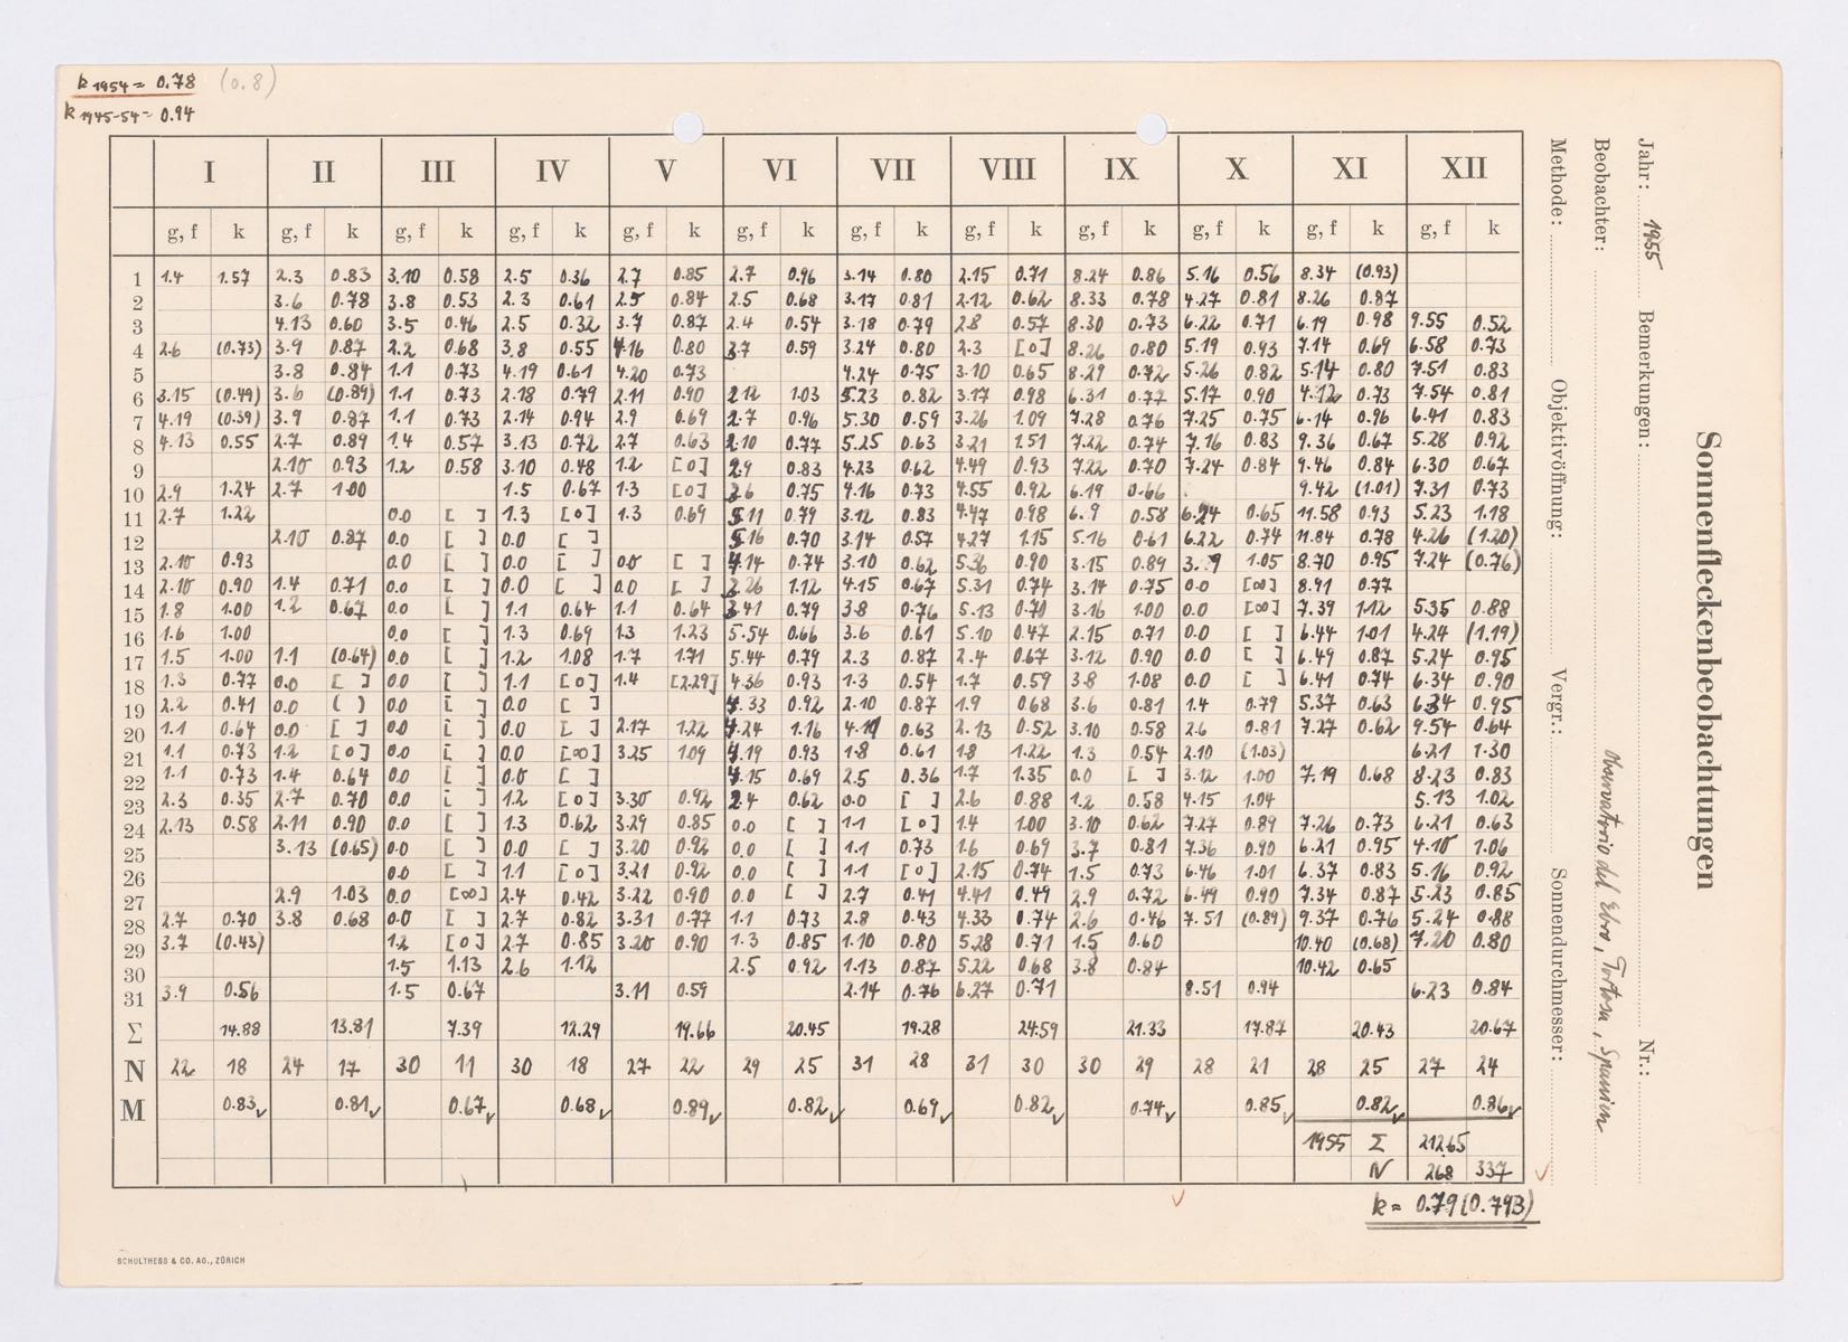 k 1954 = 0.78 (0.8)
k 1945-54 = 0.94
I II III IV V VI VII VIII IX X XI XII
g, f k g, f k g, f k g, f k g, f k g, f k g, f k g, f k g, f k g, f k g, f k g, f k
1 1.4 1.57 2.3 0.83 3.10 0.58 2.5 0.36 2.7 0.85 2.7 0.96 3.14 0.80 2.15 0.71 8.24 0.86 5.16 0.56 8.34 (0.93)
2 3.6 0.78 3.8 0.53 2.3 0.61 2.5 0.84 2.5 0.68 3.17 0.81 2.12 0.62 8.33 0.78 4.27 0.81 8.26 0.87
3 4.13 0.60 3.5 0.46 2.5 0.32 3.7 0.87 2.4 0.54 3.18 0.79 2.8 0.57 8.30 0.73 6.22 0.71 6.19 0.98 9.55 0.52
4 2.6 (0.73) 3.9 0.87 2.2 0.68 3.8 0.55 4.16 0.80 3.7 0.59 3.24 0.80 2.3 [0] 8.26 0.80 5.19 0.93 7.14 0.69 6.58 0.73
5 3.8 0.84 1.1 0.73 4.19 0.61 4.20 0.73 4.24 0.75 3.10 0.65 8.29 0.72 5.26 0.82 5.14 0.80 7.51 0.83
6 3.15 (0.49) 3.6 (0.89) 1.1 0.73 2.18 0.79 2.11 0.90 2.12 1.03 5.23 0.82 3.17 0.98 6.31 0.77 5.17 0.90 4.12 0.73 7.54 0.81
7 4.19 (0.39) 3.9 0.87 1.1 0.73 2.14 0.94 2.9 0.69 2.7 0.96 5.30 0.59 3.26 1.09 7.28 0.76 7.25 0.75 6.14 0.96 6.41 0.83
8 4.13 0.55 2.7 0.89 1.4 0.57 3.13 0.72 2.7 0.63 2.10 0.77 5.25 0.63 3.21 1.51 7.22 0.74 7.16 0.83 9.36 0.67 5.28 0.92
9 2.10 0.93 1.2 0.58 3.10 0.48 1.2 [0] 2.9 0.83 4.23 0.62 4.49 0.93 7.22 0.70 7.24 0.84 9.46 0.84 6.30 0.67
10 2.9 1.24 2.7 1.00 1.5 0.67 1.3 [0] 2.6 0.75 4.16 0.73 4.55 0.92 6.19 0.66 9.42 (1.01) 7.31 0.73
11 2.7 1.22 0.0 [ ] 1.3 [0] 1.3 0.69 5.11 0.79 3.12 0.83 4.47 0.98 6.9 0.58 6.24 0.65 11.58 0.93 5.23 1.18
12 2.10 0.87 0.0 [ ] 0.0 [ ] 5.16 0.70 3.14 0.57 4.27 1.15 5.16 0.61 6.22 0.74 11.84 0.78 4.26 (1.20)
13 2.10 0.93 0.0 [ ] 0.0 [ ] 0.0 [ ] 4.14 0.74 3.10 0.62 5.36 0.90 3.15 0.89 1.05 8.70 0.95 7.24 (0.76)
14 2.10 0.90 1.4 0.71 0.0 [ ] 0.0 [ ] 0.0 [ ] 2.26 1.12 4.15 0.67 5.31 0.74 3.14 0.75 0.0 [∞] 8.91 0.77
15 1.8 1.00 1.2 0.67 0.0 [ ] 1.1 0.64 1.1 0.64 3.41 0.79 3.8 0.76 5.13 0.70 3.16 1.00 0.0 [∞] 7.39 1.12 5.35 0.88
16 1.6 1.00 0.0 [ ] 1.3 0.69 1.3 1.23 5.54 0.66 3.6 0.61 5.10 0.47 2.15 0.71 0.0 [ ] 6.44 1.01 4.24 (1.19)
17 1.5 1.00 1.1 (0.64) 0.0 [ ] 1.2 1.08 1.7 1.71 5.44 0.79 2.3 0.87 2.4 0.67 3.12 0.90 0.0 [ ] 6.49 0.87 5.24 0.95
18 1.3 0.77 0.0 [ ] 0.0 [ ] 1.1 [0] 1.4 [2.29] 4.36 0.93 1.3 0.54 1.7 0.59 3.8 1.08 0.0 [ ] 6.41 0.74 6.34 0.90
19 2.2 0.41 0.0 ( ) 0.0 [ ] 0.0 [ ] 4.33 0.92 2.10 0.87 1.9 0.68 3.6 0.81 1.4 0.79 5.37 0.63 6.34 0.95
20 1.1 0.64 0.0 [ ] 0.0 [ ] 0.0 [ ] 2.17 1.22 4.24 1.16 0.63 2.13 0.52 3.10 0.58 2.6 0.81 7.27 0.62 9.54 0.64
21 1.1 0.73 1.2 [0] 0.0 [ ] 0.0 [∞] 3.25 1.09 4.19 0.93 1.8 0.61 1.8 1.22 1.3 0.54 2.10 (1.03) 6.21 1.30
22 1.1 0.73 1.4 0.64 0.0 [ ] 0.0 [ ] 4.15 0.69 2.5 0.36 1.7 1.35 0.0 [ ] 3.12 1.00 7.19 0.68 8.23 0.83
23 2.3 0.35 2.7 0.70 0.0 [ ] 1.2 [0] 3.30 0.92 2.4 0.62 0.0 [ ] 2.6 0.88 1.2 0.58 4.15 1.04 5.13 1.02
24 2.13 0.58 2.11 0.90 0.0 [ ] 1.3 0.62 3.29 0.85 0.0 [ ] 1.1 [0] 1.4 1.00 3.10 0.62 7.27 0.89 7.26 0.73 6.21 0.63
25 3.13 (0.65) 0.0 [ ] 0.0 [ ] 3.20 0.92 0.0 [ ] 1.1 0.73 1.6 0.69 3.7 0.81 7.36 0.90 6.21 0.95 4.10 1.06
26 0.0 [ ] 1.1 [0] 3.21 0.92 0.0 [ ] 1.1 [0] 2.15 0.74 1.5 0.73 6.46 1.01 6.37 0.83 5.16 0.92
27 2.9 1.03 0.0 [∞] 2.4 0.42 3.22 0.90 0.0 [ ] 2.7 0.41 4.41 0.49 2.9 0.72 6.49 0.90 7.34 0.87 5.23 0.85
28 2.7 0.70 3.8 0.68 0.0 [ ] 2.7 0.82 3.31 0.77 1.1 0.73 2.8 0.43 4.33 0.74 2.6 0.46 7.51 (0.89) 9.37 0.76 5.24 0.88
29 3.7 (0.43) 1.2 [0] 2.7 0.85 3.20 0.90 1.3 0.85 1.10 0.80 5.28 0.71 1.5 0.60 10.40 (0.68) 7.20 0.80
30 1.5 1.13 2.6 1.12 2.5 0.92 1.13 0.87 5.22 0.68 3.8 0.84 10.42 0.65
31 3.9 0.56 1.5 0.67 3.11 0.59 2.14 0.76 6.27 0.71 8.51 0.94 6.23 0.84
Σ 14.88 13.81 7.39 12.29 19.66 20.45 19.28 24.59 21.33 17.87 20.43 20.67
N 22 18 24 17 30 11 30 18 27 22 29 25 31 28 31 30 30 29 28 21 28 25 27 24
M 0.83 0.81 0.67 0.68 0.89 0.82 0.69 0.82 0.74 0.85 0.82 0.86
1955 Σ 212.65
N 268 337
k = 0.79 (0.793)
SCHULTHESS & CO. AG., ZÜRICH
Sonnenfleckenbeobachtungen
Jahr: 1955 Bemerkungen: Nr.:
Beobachter: Observatorio del Ebro, Tortosa, Spanien
Methode: Objektivöffnung: Vergr.: Sonnendurchmesser: